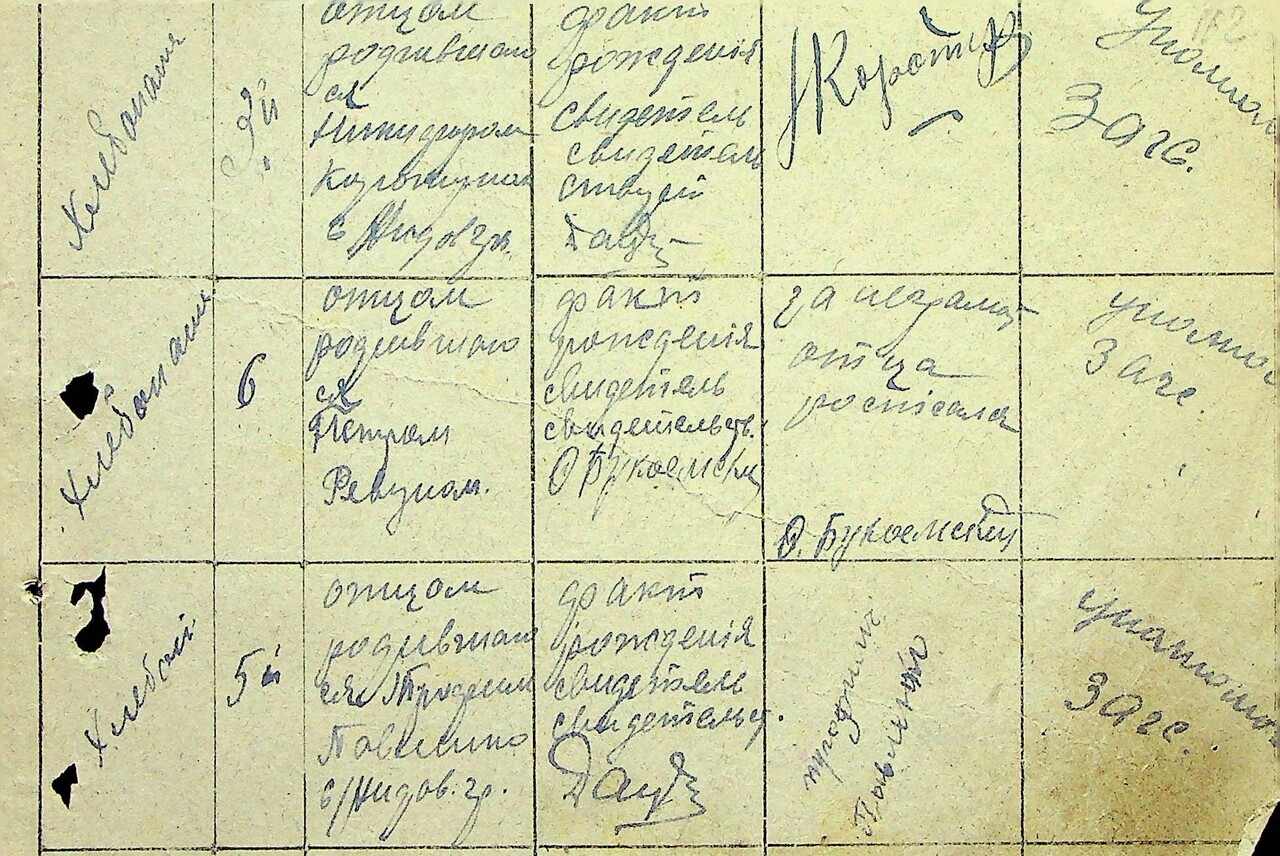 Хлебопашя
3й
отцом
родившаго
ся
Никифором
с Жидов гр.
факт
рождения
свидетель
свидетель
ствует
Дацу
Корстир
уполном
Загс.
112
Хлебопаши
6
отцом
родившаго
ся
Петром
Ревуцом.
факт
рождения
свидетель
свидетельств.
О Букоемский
за неграмот
отца
росписался
О. Букоемский
уполно
Загс.
Хлебопа
5й
отцом
родившаго
ся Трофим
Павленко
с/Жидов. гр.
факт
рождения
свидетель
свидетельст.
Дацу
трофим
Павленко
уполном
Загс.